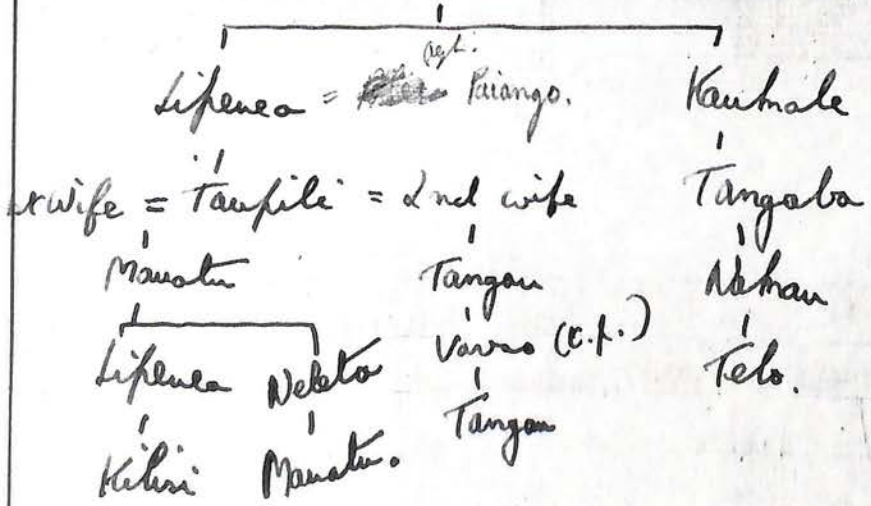 Lipenea = Paiango. Kaumale
wife = Taupili = 2nd wife Tangaba
Manatu Tangau Namau
Lipenea Neleta Vavao (c.p.) Telo.
Kilisi Manatu. Tangau